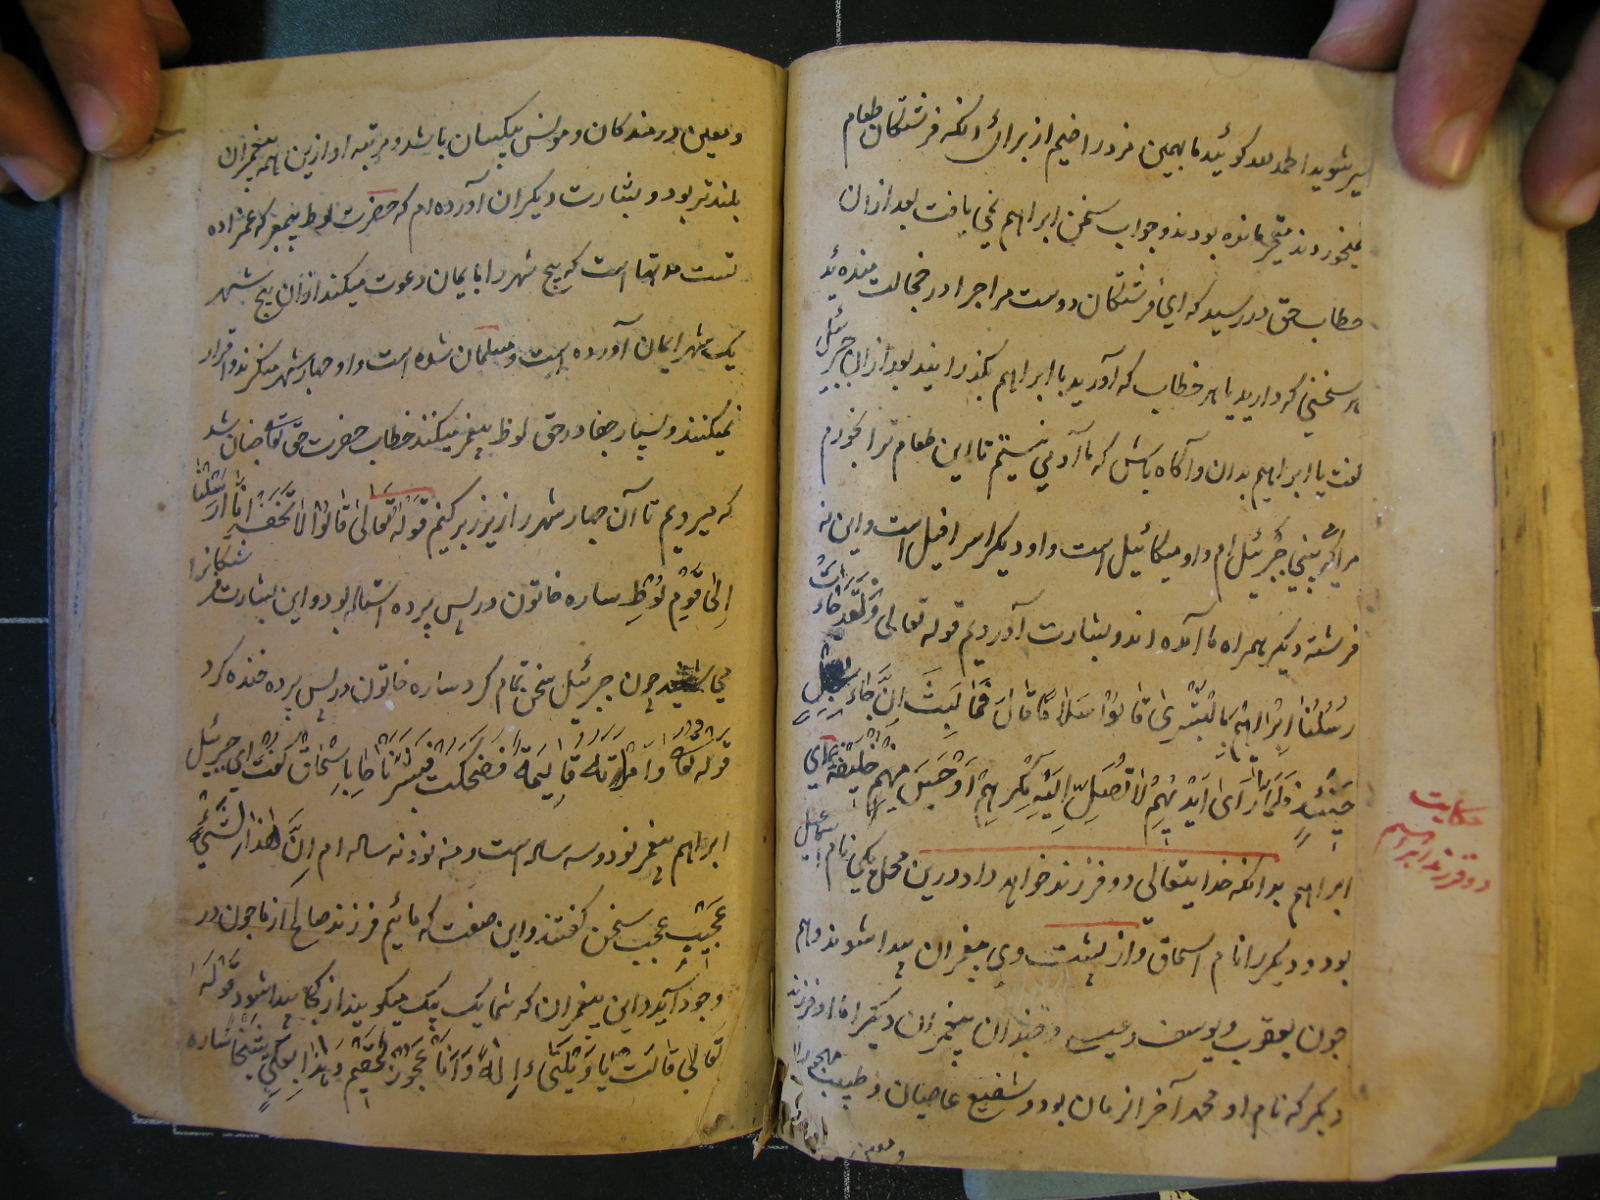 سیر شوید الحمد لله گوئید ما بهمین مزد راضیم از برای انکه فرشتکان طعام
نمیخوردند متحیر مانده بودند و جواب سخن ابراهیم نمی یافت بعد ازان
خطاب حق در رسید که ای فرشتکان دوست مرا چرا در خجالت
هر سخنی که دارید یا هر خطاب که آوردید با ابراهیم بگذرانید بعد ازان جبرئیل
گفت یا ابراهیم بدان و آگاه باش که ما آدمی نیستیم تا این طعام ترا بخوریم
من جبرئیل ام و او میکائیل است و او دیکر اسرافیل است و این نه
فرشته دیکر همراه ما آمده اند و بشارت آوردیم قوله تعالی وَلَقَدْ جَاءَتْ
رُسُلُنَا اِبْرَاهِیْمَ بِالْبُشْرٰی قَالُوْا سَلَامًا قَالَ فَمَا لَبِثَ اَنْ جَاءَ بِعِجْلٍ
حَنِیْذٍ فَلَمَّا رَاٰی اَیْدِیَهُمْ لَا تَصِلُ اِلَیْهِ نَکِرَهُمْ وَاَوْجَسَ مِنْهُمْ خِیْفَةً ای
ابراهیم بدانکه خدایتعالی دو فرزند خواهد داد درین محل یکی نام اسماعیل
بود و دیکر را نام اسحاق و از پشت وی پیغمبران پیدا شوند و هم
چون یعقوب و یوسف و عیسی و چندان پیغمبران دیکر اما او فرزند
دیکر که نام او محمد آخر الزمان بود و شفیع عاصیان و طبیب
حکایت
دو فرزند ابراهیم
و معین درمندکان و مونس بیکسان باشد و مرتبه او ازین همه پیغمبران
بلندتر بود و بشارت دیکر ان آورده ام که حضرت لوط پیغمبر که عمزاده
تست مدتها است که پنج شهر را بایمان دعوت میکند ازان پنج شهر
یک شهر ایمان آورده است و مسلمان شده است و او چهار شهر منکرند و اقرار
نمیکنند و بسیار جفا در حق لوط پیغمبر میکنند خطاب حضرت حق تعالی چنان شد
که میرویم تا آن چهار شهر را زیر زبر کنیم قوله تعالی قَالُوْا لَا تَخَفْ اِنَّا اُرْسِلْنَا
اِلٰی قَوْمِ لُوْطٍ ساره خاتون در پس پرده استاده بود و این بشارت فرشتکانرا
می شنید چون جبرئیل سخن تمام کرد ساره خاتون در پس پرده خنده کرد
قوله تعالی وَامْرَاَتُهُ قَائِمَةٌ فَضَحِکَتْ فَبَشَّرْنَاهَا بِاِسْحَاقَ گفت ای جبرئیل
ابراهیم پیغمبر نود و سه ساله است و منه نود نه ساله ام اِنَّ هٰذَا لَشَیْءٌ
عَجِیْبٌ عجب سخن گفتند و این صفت که مائیم فرزند صالح از ما چون در
وجود آید و این پیغمبران که شما یک بیک میکویند از کجا پیدا شود قوله
تعالی قَالَتْ یَا وَیْلَتٰی ءَاَلِدُ وَاَنَا عَجُوْزٌ وَهٰذَا بَعْلِیْ شَیْخًا ساره